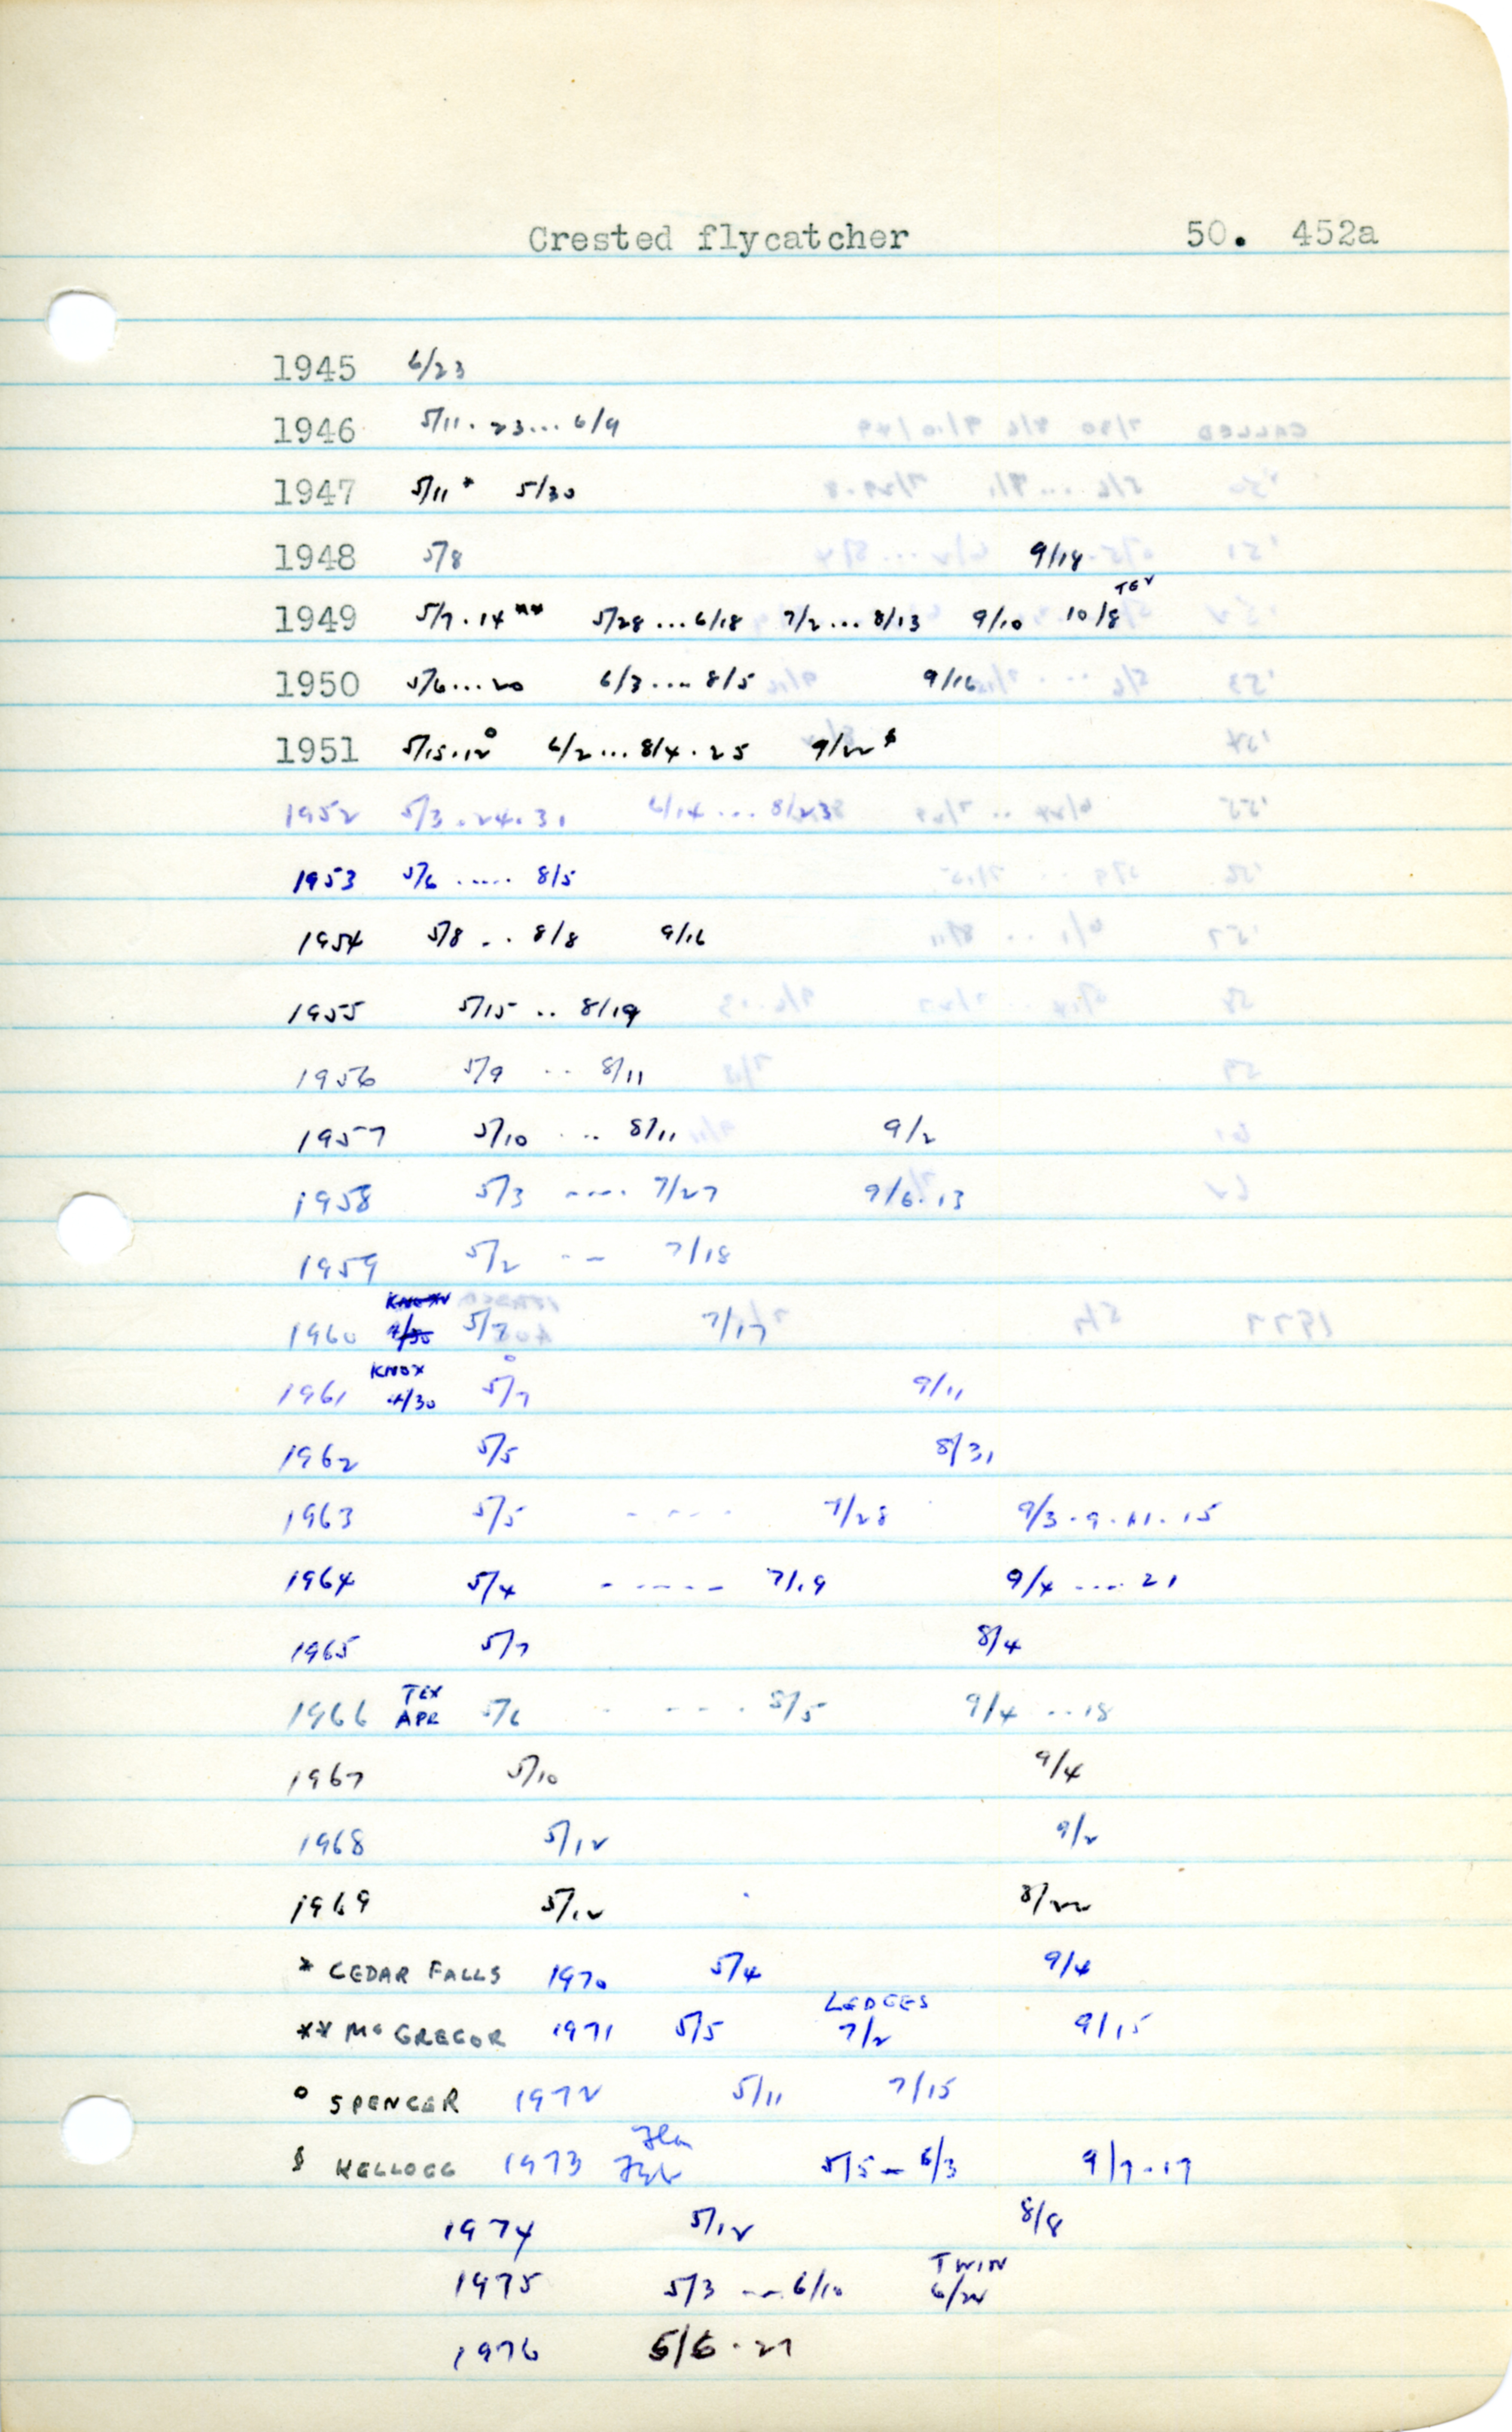 Crested flycatcher 50. 452a
1945 6/23
1946 5/11 . 23 ... 6/9
1947 5/11 * 5/30
1948 5/8 9/18
1949 5/7 . 14 ** 5/28 ... 6/18 7/2 ... 8/13 9/10 10/8
1950 5/6 ... 20 6/3 .... 8/5 9/16
1951 5/5 . 12 ° 6/2 ... 8/4 . 25 9/22 $
1952 5/3 . 24 . 31 6/14 ... 8/23
1953 5/6 ..... 8/5
1954 5/8 .. 8/8 9/16
1955 5/15 .. 8/19
1956 5/9 .. 8/11
1957 5/10 ... 8/11 9/2
1958 5/3 ---- 7/27 9/6 . 13
1959 5/2 -- 7/18
1960 5/7 7/17
KNOX
1961 4/30 5/7 ° 9/11
1962 5/5 8/31
1963 5/5 ---- 7/28 9/3 . 9 . 11 . 15
1964 5/4 ----- 7/19 9/4 ---- 21
1965 5/7 8/4
TEX
1966 APR 5/6 - - - - 8/5 9/4 .. 18
1967 5/10 9/4
1968 5/12 9/2
1969 5/12 8/22
* CEDAR FALLS 1970 5/4 9/4
LEDGES
** McGREGOR 1971 5/5 7/2 9/15
° SPENCER 1972 5/11 7/15
Fla
$ KELLOGG 1973 Feb 5/5 - 6/3 9/7 . 17
1974 5/12 8/8
TWIN
1975 5/3 --- 6/10 6/24
1976 5/6 . 27